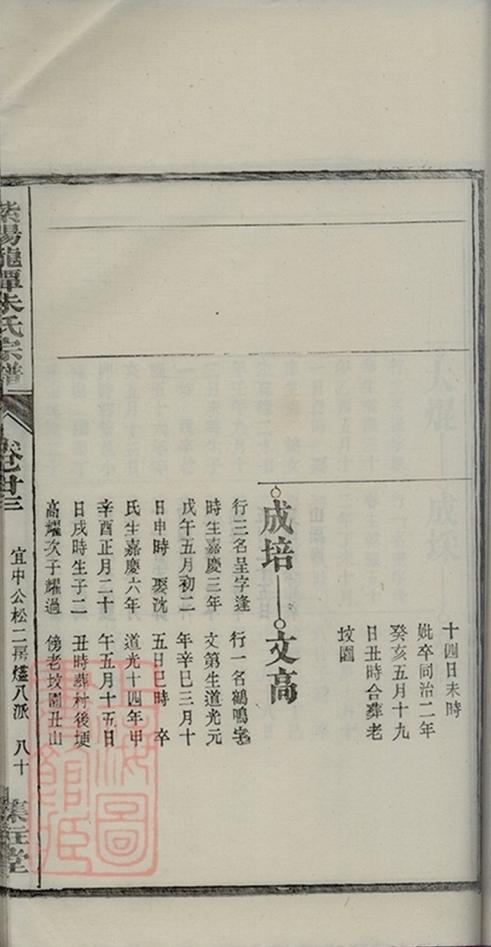 十四日未時
妣卒同治二年
癸亥五月十九
日丑時合葬老
坟園
成培 文高
行三名呈字逢
時生嘉慶三年
戊午五月初二
日申時 娶沈
氏生嘉慶六年
辛酉正月二十
日戌時生子二
高耀次子耀過
行一名鶴鳴字
文第生道光元
年辛巳三月十
五日巳時 卒
道光十四年甲
午五月十五日
丑時葬村後埂
傍老坟園丑山
紫陽龍潭朱氏宗譜
卷廿三
宜中公松二房燧八派 八十